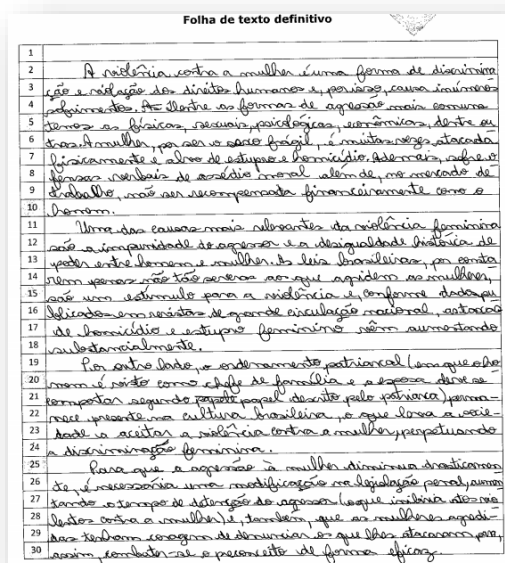 Folha de texto definitivo
1
2 A violência contra a mulher é uma forma de discrimina
3 ção e violação dos direitos humanos e, por isso, causa inúmeros
4 sofrimentos. Dentre as formas de agressão mais comuns
5 temos as físicas, sexuais, psicológicas, econômicas, dentre ou
6 tras. A mulher, por ser o sexo frágil, é muitas vezes atacada
7 fisicamente e alvo de estupros e homicídio. Ademais, sofre o
8 fensas verbais de assédio moral além de, no mercado de
9 trabalho, não ser recompensada financeiramente como o
10 homem.
11 Uma das causas mais relevantes da violência feminina
12 são a impunidade do agressor e a desigualdade histórica de
13 poder entre homem e mulher. As leis brasileiras, por conta
14 rem penas não tão severas aos que agridem as mulheres,
15 são um estímulo para a violência e, conforme dados pu
16 blicados em revistas de grande circulação nacional, as taxas
17 de homicídio e estupro feminino vêm aumentando
18 substancialmente.
19 Por outro lado, o ordenamento patriarcal (em que o ho
20 mem é visto como chefe de família e a esposa deve se
21 comportar segundo papel descrito pelo patriarca) perma-
22 nece presente na cultura brasileira, o que leva a socie-
23 dade a aceitar a violência contra a mulher, perpetuando
24 a discriminação feminina.
25 Para que a agressão à mulher diminua drasticamen
26 te, é necessária uma modificação na legislação penal, aumen
27 tando o tempo de detenção do agressor (o que inibiria atos vio
28 lentos contra a mulher) e, também, que as mulheres agredi-
29 das tenham coragem de denunciar os que lhes atacaram para,
30 assim, combater-se o preconceito de forma eficaz.